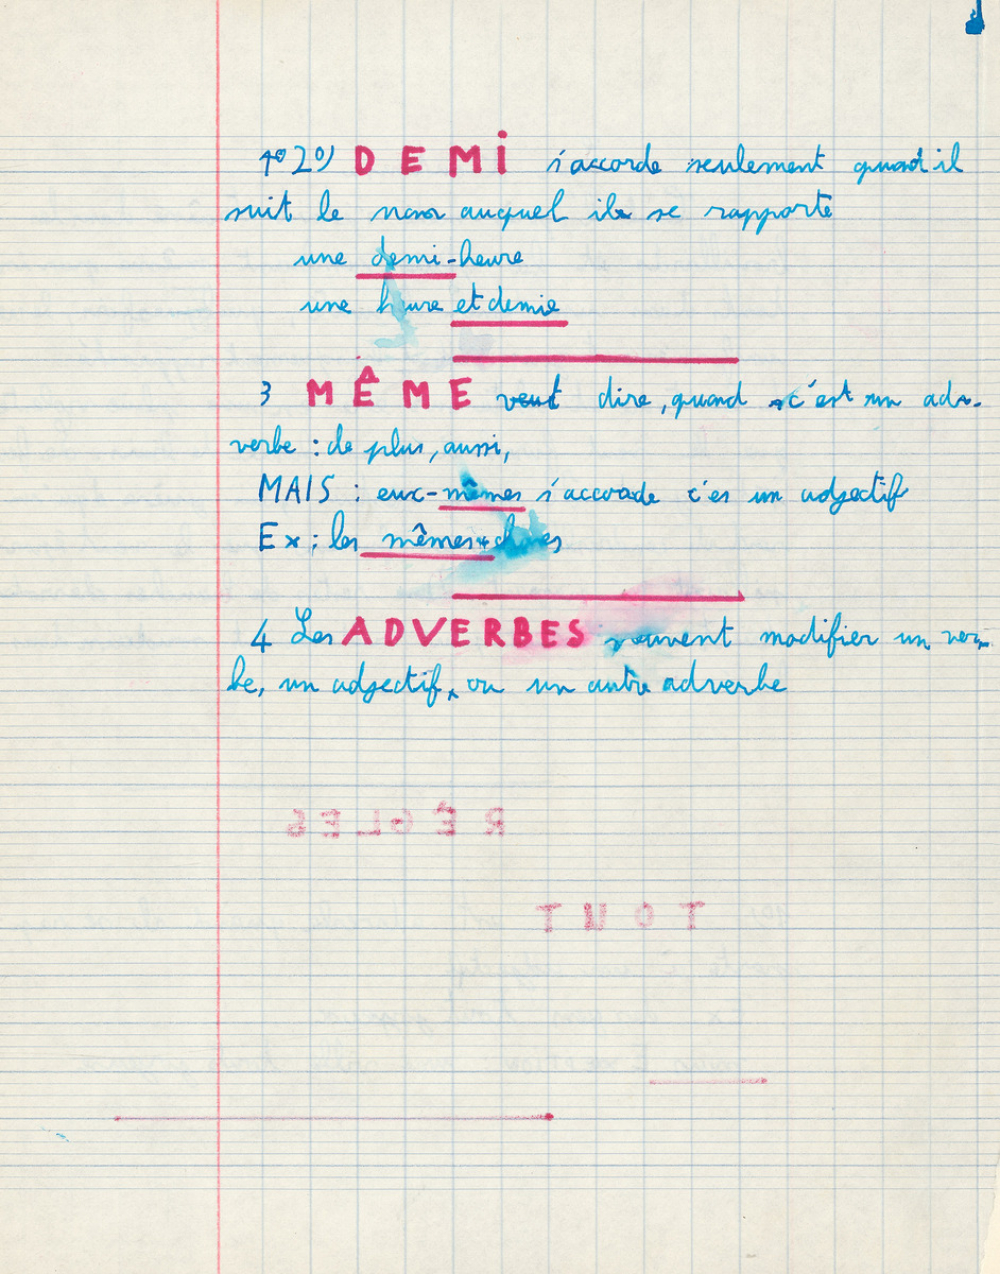 1° 2°) DEMI s'accorde seulement quand il
suit le nom auquel il se rapporte
une demi-heure
une heure et demie
3 MÊME veut dire, quand c'est un ad-
verbe : de plus, aussi,
MAIS : eux-mêmes s'accorde c'es un adjectif
Ex : les mêmes choses
4 Les ADVERBES peuvent modifier un ver-
be, un adjectif, ou un autre adverbe
RÈGLES
TOUT